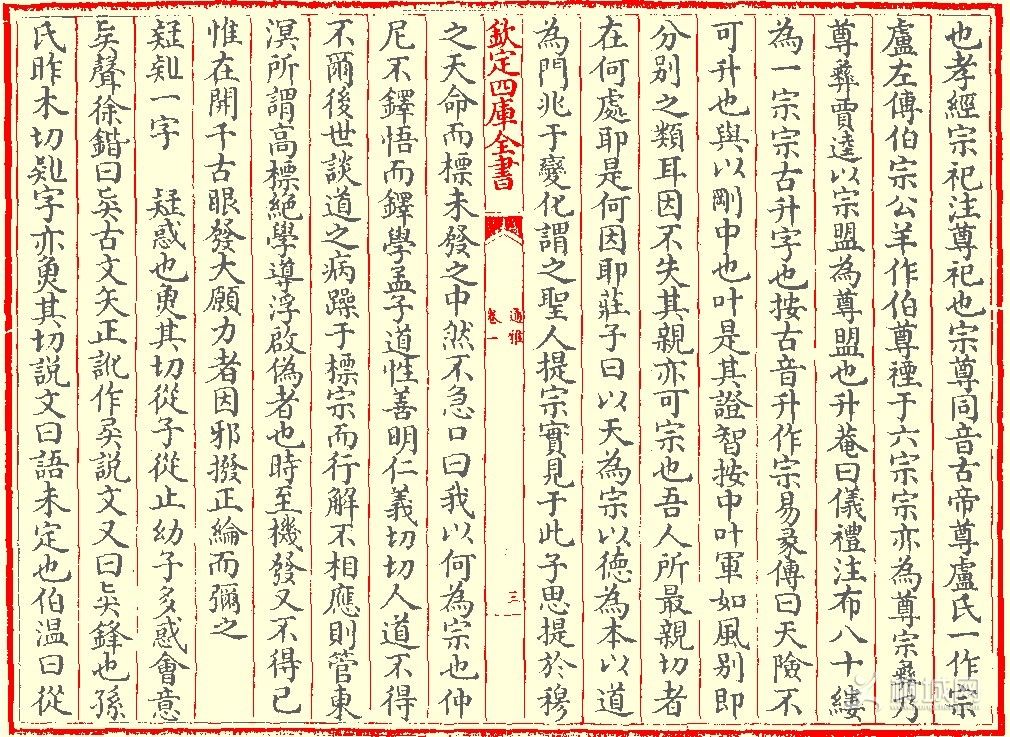 也孝經宗祀注尊祀也宗尊同音古帝尊盧氏一作宗
盧左傳伯宗公羊作伯尊禋于六宗宗亦為尊宗彝乃
尊彝賈逵以宗盟為尊盟也升菴曰儀禮注布八十縷
為一宗宗古升字也按古音升作宗易彖傳曰天險不
可升也與以剛中也叶是其證智按中叶軍如風别即
分别之類耳因不失其親亦可宗也吾人所最親切者
在何處耶是何因耶莊子曰以天為宗以徳為本以道
為門兆于變化謂之聖人提宗實見于此子思提於穆
欽定四庫全書
通雅
卷一
三
之天命而標未發之中然不急口曰我以何為宗也仲
尼不鐸悟而鐸學孟子道性善明仁義切切人道不得
不爾後世談道之病躁于標宗而行解不相應則管東
溟所謂高標絶學導浮啟偽者也時至機發又不得已
惟在開千古眼發大願力者因邪撥正綸而彌之
疑𠤕一字 疑惑也魚其切從子從止幼子多惑會意
矣聲徐鍇曰𠤗古文矢正訛作矣説文又曰𠤗鋒也孫
氏昨木切𠤕字亦魚其切説文曰語未定也伯温曰從